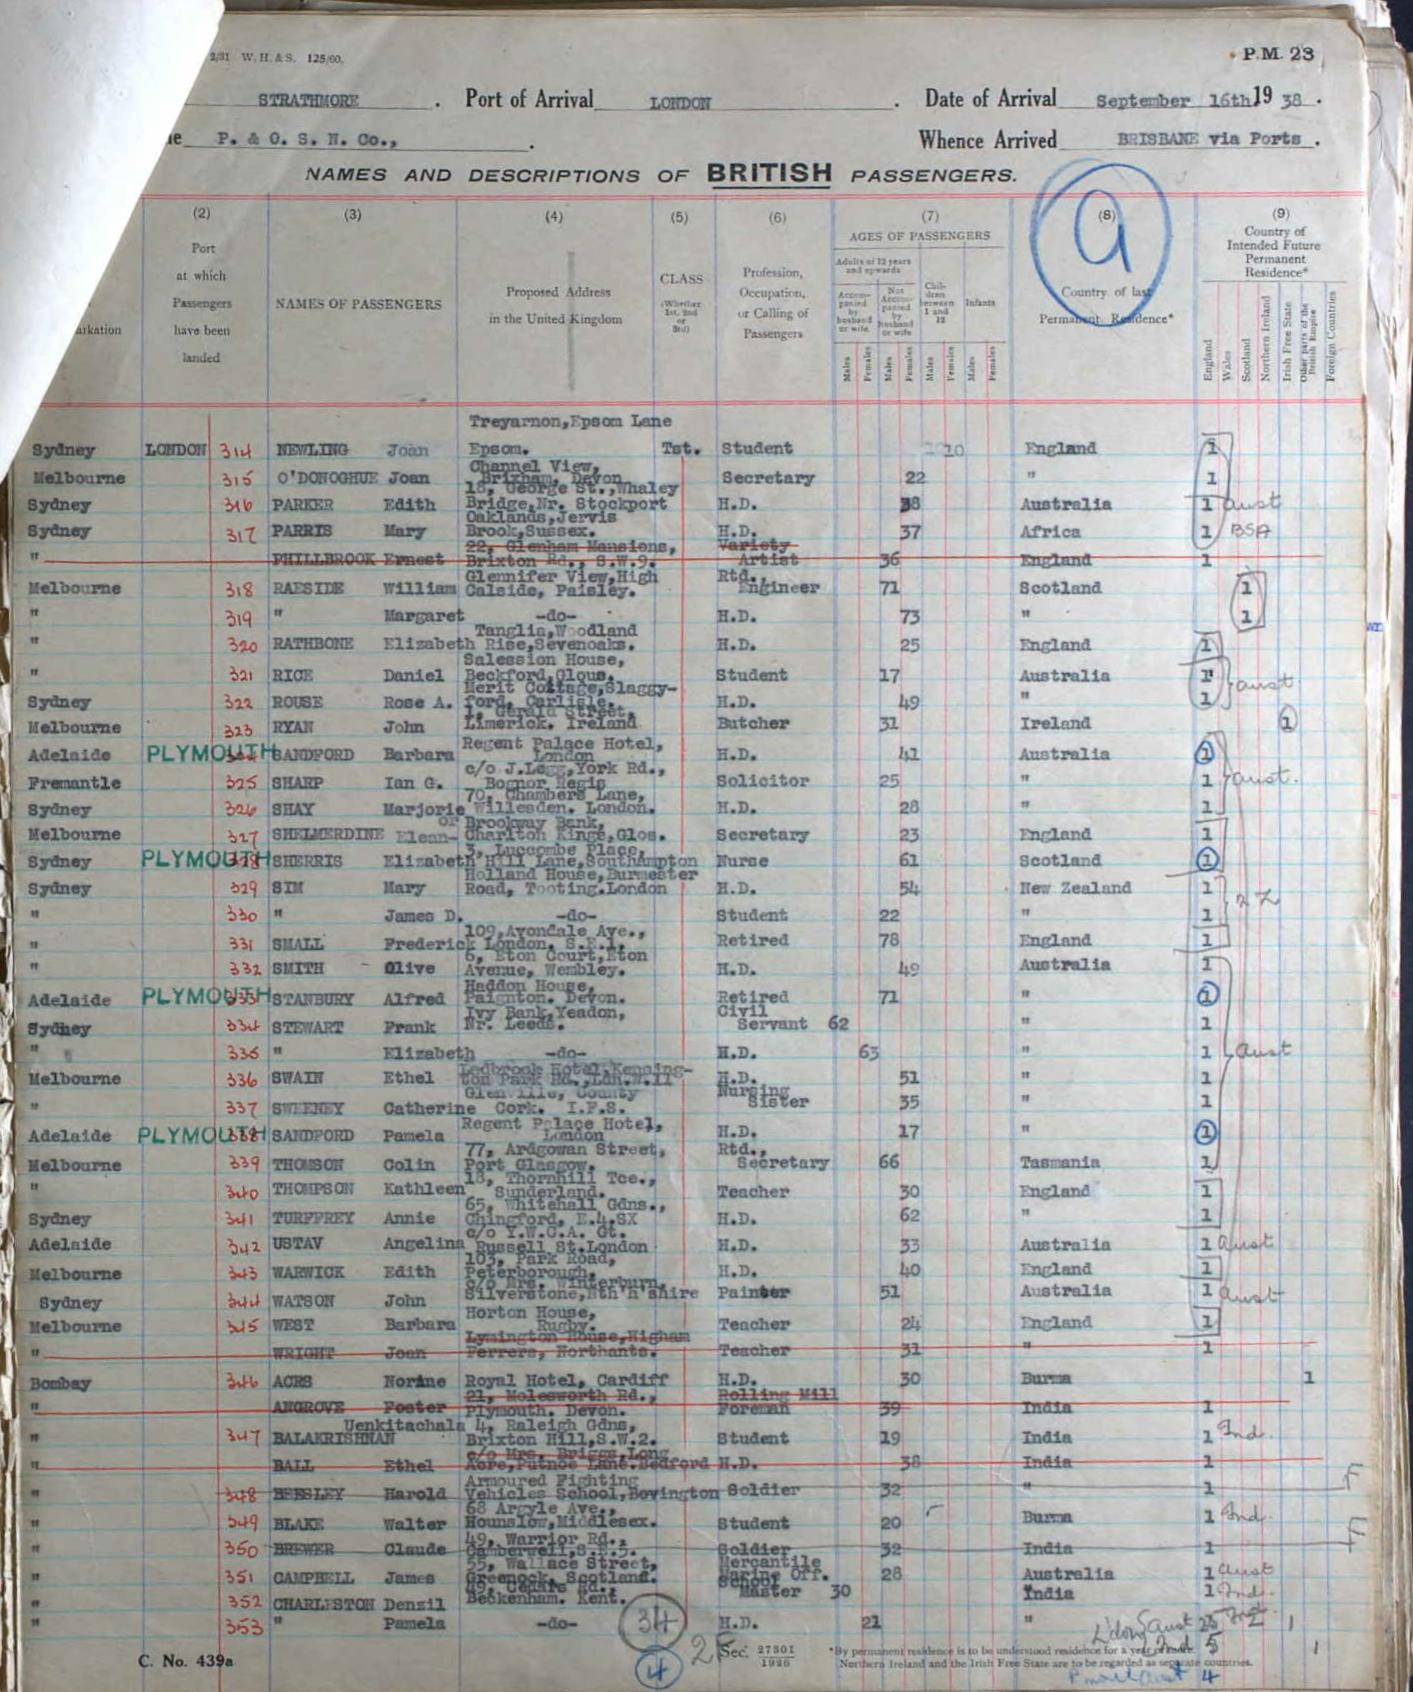 2/31 W.H.&S. 125/60.
P.M. 23
STRATHMORE. Port of Arrival LONDON. Date of Arrival September 16th, 1938.
P. & O. S. N. Co.,. Whence Arrived BRISBANE via Ports.
NAMES AND DESCRIPTIONS OF BRITISH PASSENGERS.
9
(2) (3) (4) (5) (6) (7) (8) (9)
arkation
Port at which Passengers have been landed
NAMES OF PASSENGERS
Proposed Address in the United Kingdom
CLASS (Whether 1st, 2nd or 3rd)
Profession, Occupation, or Calling of Passengers
AGES OF PASSENGERS
Adults of 12 years and upwards
Accompanied by husband or wife
Not Accompanied by husband or wife
Children between 1 and 12
Infants
Males Females Males Females Males Females Males Females
Country of last Permanent Residence*
Country of Intended Future Permanent Residence*
England Wales Scotland Northern Ireland Irish Free State Other parts of the British Empire Foreign Countries
Treyarnon, Epsom Lane
Sydney LONDON 314 NEWLING Joan Epsom. Tst. Student 10 England 1
Channel View,
Melbourne 315 O'DONOGHUE Joan Brixham, Devon Secretary 22 " 1
18, George St., Whaley
Sydney 316 PARKER Edith Bridge, Nr. Stockport H.D. 38 Australia 1 Aust
Oaklands, Jervis
Sydney 317 PARRIS Mary Brook, Sussex. H.D. 37 Africa 1 BSA
22, Glenham Mansions, Variety
" PHILLBROOK Ernest Brixton Rd., S.W.9. Artist 36 England 1
Glennifer View, High Rtd.,
Melbourne 318 RAESIDE William Calside, Paisley. Engineer 71 Scotland 1
" 319 " Margaret -do- H.D. 73 " 1
Tanglia, Woodland
" 320 RATHBONE Elizabeth Rise, Sevenoaks. H.D. 25 England 1
Salession House,
" 321 RICE Daniel Beckford, Glous. Student 17 Australia 1 Aust
Merit Cottage, Slaggy-
Sydney 322 ROUSE Rose A. ford, Carlisle. H.D. 49 " 1
1, Gerald Street,
Melbourne 323 RYAN John Limerick. Ireland Butcher 31 Ireland 1
Regent Palace Hotel,
Adelaide PLYMOUTH SANDFORD Barbara London H.D. 41 Australia 1
c/o J.Legg, York Rd.,
Fremantle 325 SHARP Ian G. Bognor Regis Solicitor 25 " 1 Aust.
70, Chambers Lane,
Sydney 326 SHAY Marjorie Willesden. London. H.D. 28 " 1
or Brookway Bank,
Melbourne 327 SHELMERDINE Elean- Charlton Kings, Glos. Secretary 23 England 1
3, Luccombe Place,
Sydney PLYMOUTH 328 SHERRIS Elizabeth Hill Lane, Southampton Nurse 61 Scotland 1
Holland House, Burmester
Sydney 329 SIM Mary Road, Tooting. London H.D. 54 New Zealand 1 NZ
" 330 " James D. -do- Student 22 " 1
109, Avondale Ave.,
" 331 SMALL Frederick London, S.E.1. Retired 78 England 1
6, Eton Court, Eton
" 332 SMITH Olive Avenue, Wembley. H.D. 49 Australia 1
Haddon House,
Adelaide PLYMOUTH 333 STANBURY Alfred Paignton. Devon. Retired 71 " 1
Ivy Bank, Yeadon, Civil
Sydney 334 STEWART Frank Nr. Leeds. Servant 62 " 1
" 335 " Elizabeth -do- H.D. 63 " 1 Aust
Ladbrook Hotel, Kensing-
Melbourne 336 SWAIN Ethel ton Park Rd., Lon. W.11 H.D. 51 " 1
Glenville, County Nursing
" 337 SWEENEY Catherine Cork. I.F.S. Sister 35 " 1
Regent Palace Hotel,
Adelaide PLYMOUTH 338 SANDFORD Pamela London H.D. 17 " 1
77, Ardgowan Street, Rtd.,
Melbourne 339 THOMSON Colin Port Glasgow. Secretary 66 Tasmania 1
18, Thornhill Tce.,
" 340 THOMPSON Kathleen Sunderland. Teacher 30 England 1
65, Whitehall Gdns.,
Sydney 341 TURFFREY Annie Chingford, E.4, SX H.D. 62 " 1
c/o Y.W.C.A. Gt.
Adelaide 342 USTAV Angelina Russell St. London H.D. 33 Australia 1 Aust
103, Park Road,
Melbourne 343 WARWICK Edith Peterborough, H.D. 40 England 1
c/o Mrs. Winterburn,
Sydney 344 WATSON John Silverstone, Nth'n'shire Painter 51 Australia 1 Aust
Horton House,
Melbourne 345 WEST Barbara Rugby. Teacher 24 England 1
Lymington House, Higham
" WRIGHT Joan Ferrers, Northants. Teacher 31 " 1
Bombay 346 ACRS Norine Royal Hotel, Cardiff H.D. 30 Burma 1
21, Molesworth Rd., Rolling Mill
" ANGROVE Foster Plymouth. Devon. Foreman 39 India 1
Uenkitachala 4, Raleigh Gdns,
" 347 BALAKRISHNAN Brixton Hill, S.W.2. Student 19 India 1 Ind.
c/o Mrs. Briggs, Long
" BALL Ethel Acre, Putnoe Lane. Bedford H.D. 38 India 1
Armoured Fighting
" 348 BEESLEY Harold Vehicles School, Bovington Soldier 32 " 1 F
68 Argyle Ave.,
" 349 BLAKE Walter Hounslow, Middlesex. Student 20 Burma 1 Ind.
49, Warrior Rd.,
" 350 BREWER Claude Camberwell, S.E.5. Soldier 32 India 1 F
55, Wallace Street, Mercantile
" 351 CAMPBELL James Greenock, Scotland. Marine Off. 28 Australia 1 Aust
49, Cedars Rd., School
" 352 CHARLESTON Denzil Beckenham. Kent. Master 30 India 1 Ind.
" 353 " Pamela -do- H.D. 21 "
34
4
C. No. 439a
Sec. 27301/1926
*By permanent residence is to be understood residence for a year or more.
Northern Ireland and the Irish Free State are to be regarded as separate countries.
Aust 4